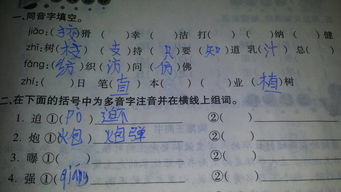 一、同音字填空。
jiāo:(狡)猾 ( )幸 ( )洁 打( ) ( )纳 ( )健
zhī:树(枝) (支)持 (只)要 (知)道 乳(汁) 总( )
fǎng:(纺)织 (访)问 (仿)佛
zhí:( )日 笔(直) 本( ) ( )业 (植)树
二、在下面的括号中为多音字注音并在横线上组词。
1. 迫 ①(pò) 迫不 ②( )
2. 炮 ①(火包) 炮弹 ②( )
3. 曝 ①( ) ②( )
4. 强 ①(qiáng) ②( )